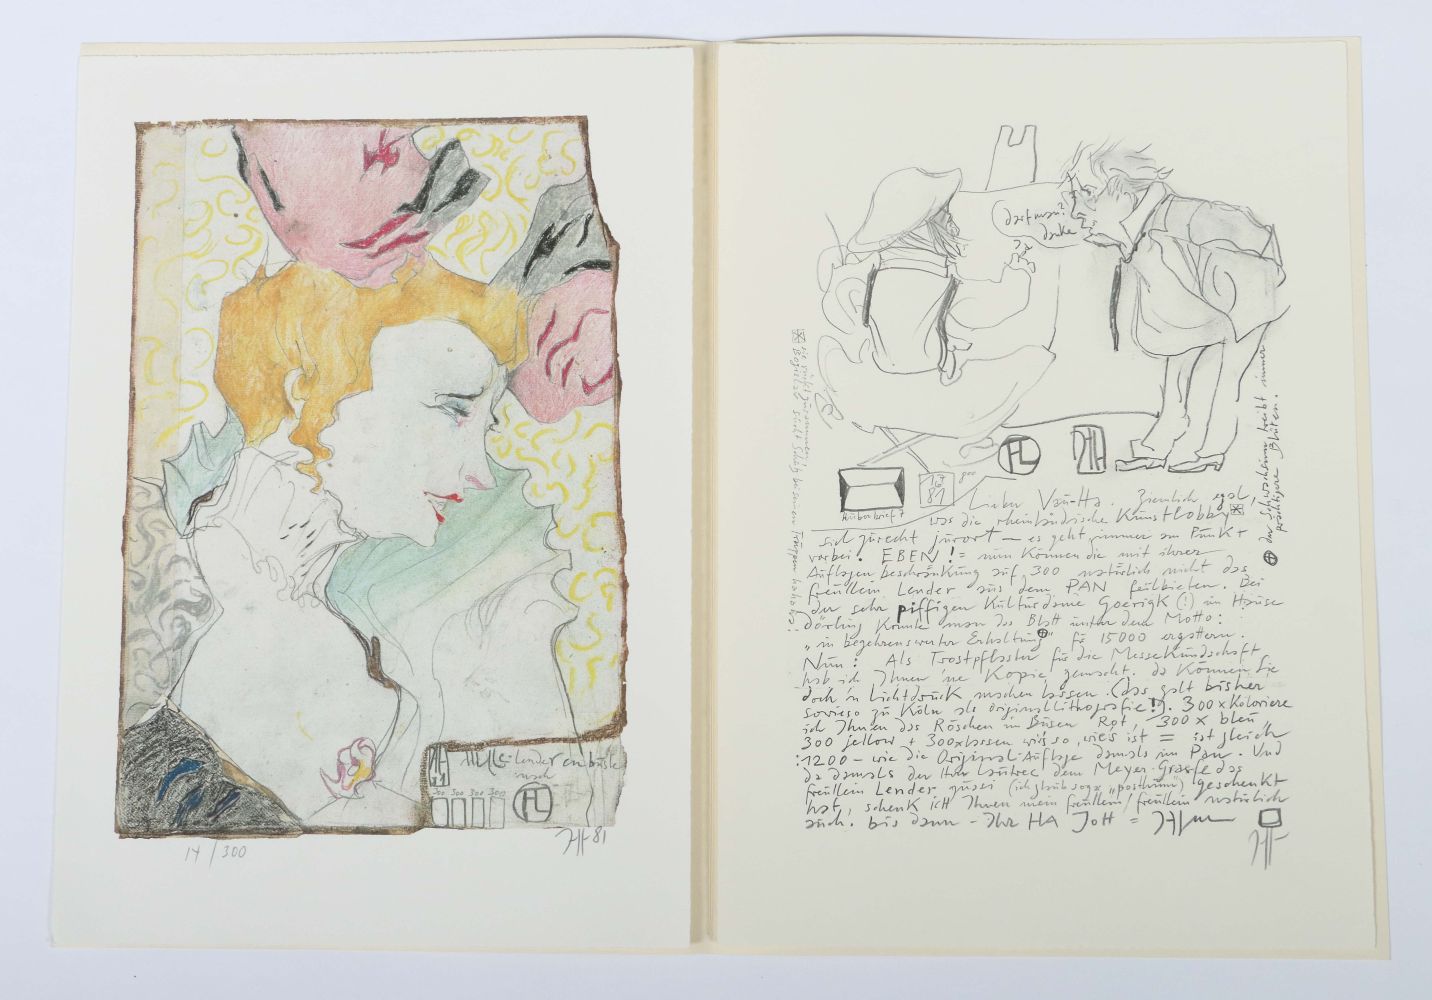 Mlls. Lender en buste
nach
300 300 300 300
HTL
81
14/300
81
darf man?
danke
ja
HTL
17
81
Lieber Vau-Ha. Ziemlich egal,
was die rheinländische Kunstlobby
sich zurecht jurort — es geht immer am Punkt
vorbei. EBEN! = nun können die mit ihrer
Auflagenbeschränkung auf 300 natürlich nicht das
freullein Lender aus dem PAN feilbieten. Bei
der sehr piffigen Kulturdame Goerigk (!) im Hause
Dörling konnte man das Blatt unter dem Motto:
„in begehrenswerter Erhaltung" für 15000 ergattern.
Nun: Als Trostpflaster für die Messekundschaft
hab ich Ihnen 'ne Kopie gemacht. da können Sie
doch 'n Lichtdruck machen lassen. (das galt bisher
sowieso zu Köln als originallithografie!). 300x Koloriere
ich Ihnen das Röschen im Busen Rot, 300 x bleu,
300 jellow + 300x lassen wirs so, wie's ist = ist gleich
:1200 — wie die Original-Auflage damals im Pan. Und
da damals der Herr Lautrec dem Meyer-Graefe das
freullein Lender zusei (ich glaub sogar „posthum") geschenkt
hat, schenk ich Ihnen mein freullein / freullein natürlich
auch. bis dann - Ihr HA Jott =
der Schwachsinn treibt immer
prächtigere Blüten.